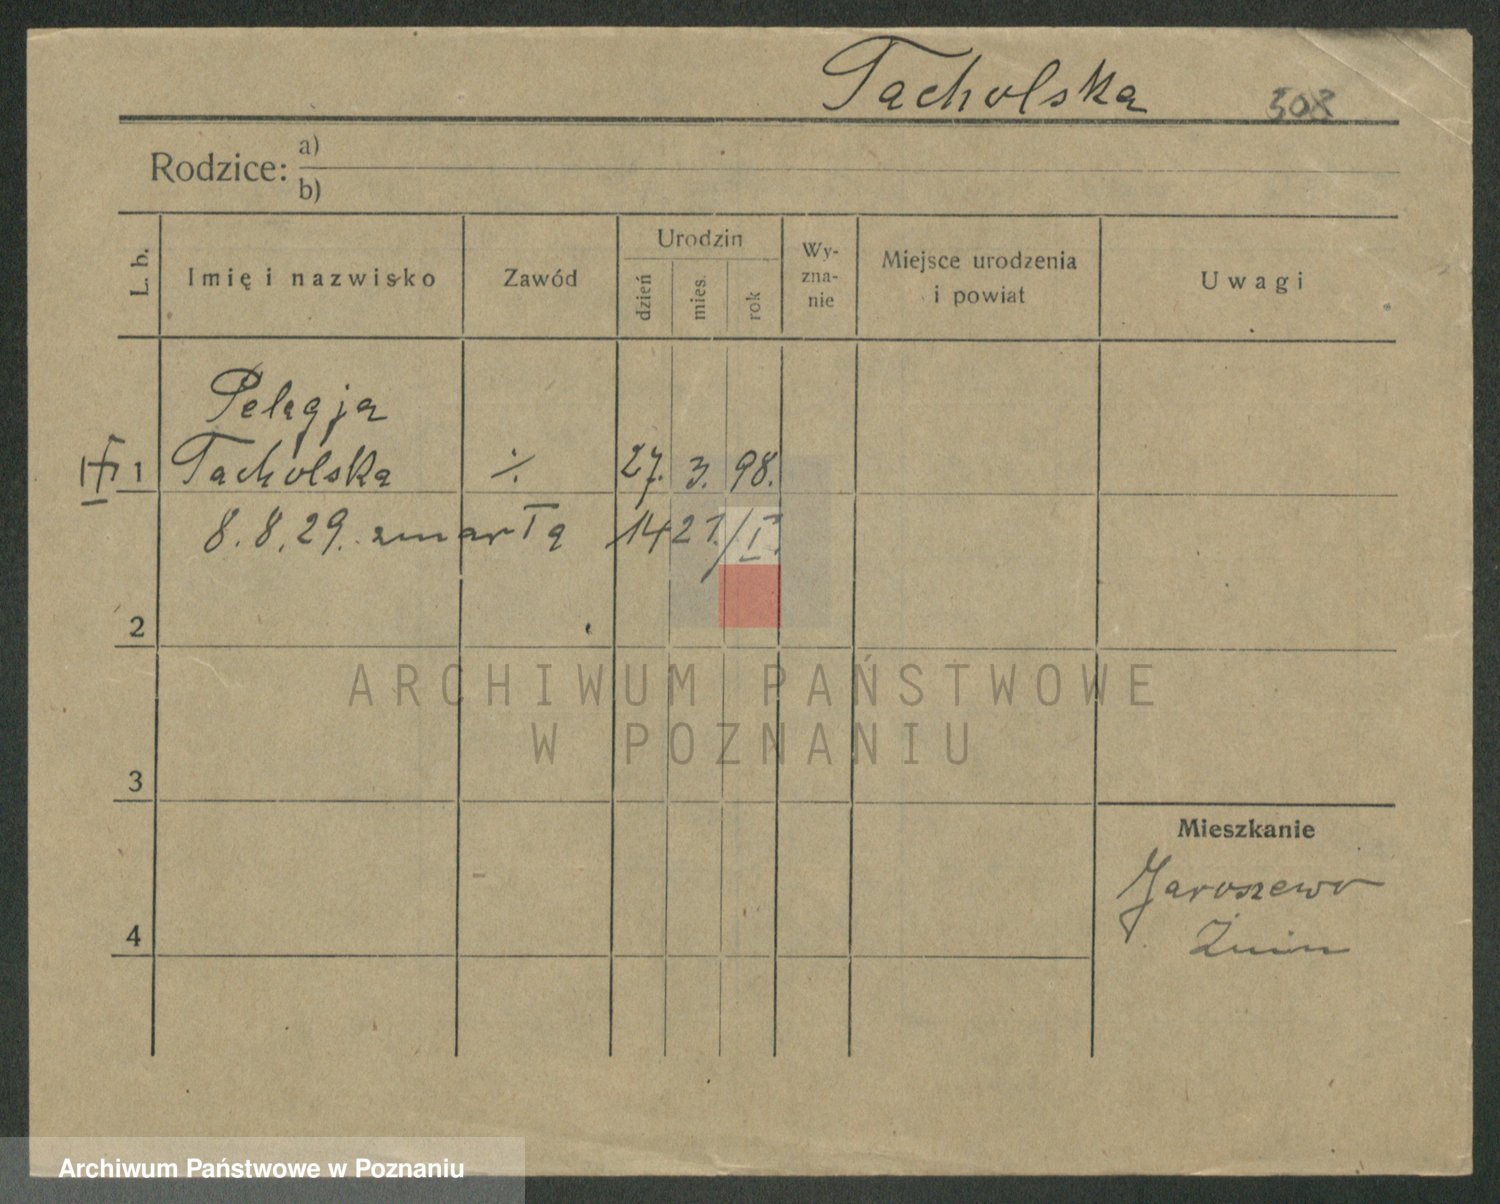 Tacholska 308
Rodzice: a)
b)
L. b.
Imię i nazwisko
Zawód
Urodzin
dzień
mies.
rok
Wy-
zna-
nie
Miejsce urodzenia
i powiat
Uwagi
Pelagja
1 Tacholska ./. 27. 3. 98.
8.8.29. zmarła 1421./I.
2
3
4
Mieszkanie
Jaroszewo
Żnin
ARCHIWUM PAŃSTWOWE
W POZNANIU
Archiwum Państwowe w Poznaniu